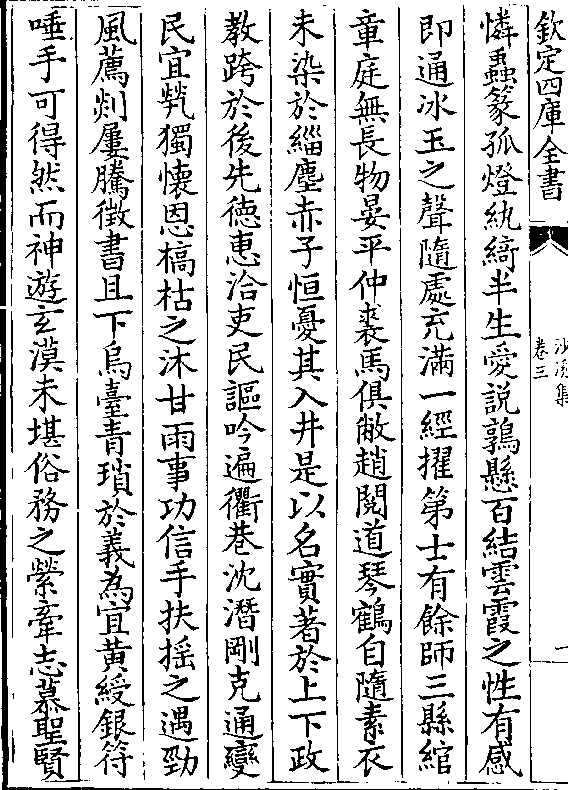 欽定四庫全書
沙溪集
卷三
憐蟲篆孤燈紈綺半生愛說鶉懸百結雲霞之性有感
即通冰玉之聲隨處充滿一經擢第士有餘師三縣綰
章庭無長物晏平仲裘馬俱敝趙閱道琴鶴自隨素衣
未染於緇塵赤子恒憂其入井是以名實著於上下政
教跨於後先徳惠洽吏民謳吟遍衢巷沈潛剛克通變
民宜煢獨懐恩槁枯之沐甘雨事功信手扶揺之遇勁
風薦剡屢騰徴書且下烏臺青瑣於義為宜黄綬銀符
唾手可得然而神遊玄漠未堪俗務之縈牽志慕聖賢